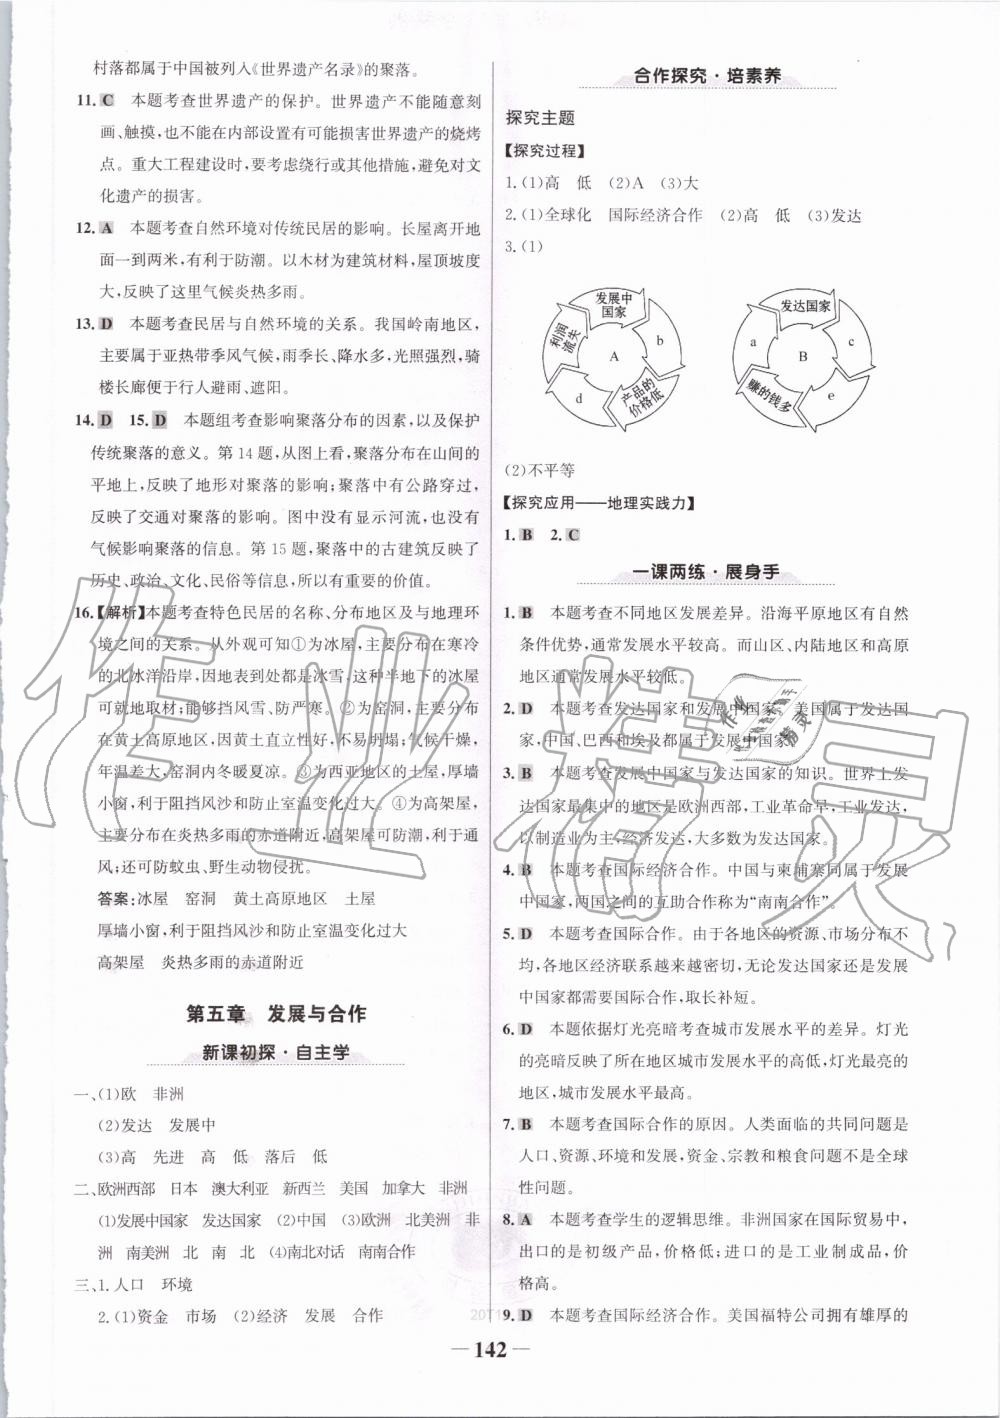 村落都属于中国被列入《世界遗产名录》的聚落。
11. C 本题考查世界遗产的保护。世界遗产不能随意刻
画、触摸,也不能在内部设置有可能损害世界遗产的烧烤
点。重大工程建设时,要考虑绕行或其他措施,避免对文
化遗产的损害。
12. A 本题考查自然环境对传统民居的影响。长屋离开地
面一到两米,有利于防潮。以木材为建筑材料,屋顶坡度
大,反映了这里气候炎热多雨。
13. D 本题考查民居与自然环境的关系。我国岭南地区,
主要属于亚热带季风气候,雨季长、降水多,光照强烈,骑
楼长廊便于行人避雨、遮阳。
14. D 15. D 本题组考查影响聚落分布的因素,以及保护
传统聚落的意义。第14题,从图上看,聚落分布在山间的
平地上,反映了地形对聚落的影响;聚落中有公路穿过,
反映了交通对聚落的影响。图中没有显示河流,也没有
气候影响聚落的信息。第15题,聚落中的古建筑反映了
历史、政治、文化、民俗等信息,所以有重要的价值。
16.【解析】本题考查特色民居的名称、分布地区及与地理环
境之间的关系。从外观可知①为冰屋,主要分布在寒冷
的北冰洋沿岸,因地表到处都是冰雪,这种半地下的冰屋
可就地取材;能够挡风雪、防严寒。②为窑洞,主要分布
在黄土高原地区,因黄土直立性好,不易坍塌;气候干燥,
年温差大,窑洞内冬暖夏凉。③为西亚地区的土屋,厚墙
小窗,利于阻挡风沙和防止室温变化过大。④为高架屋,
主要分布在炎热多雨的赤道附近,高架屋可防潮,利于通
风;还可防蚊虫、野生动物侵扰。
答案:冰屋 窑洞 黄土高原地区 土屋
厚墙小窗,利于阻挡风沙和防止室温变化过大
高架屋 炎热多雨的赤道附近
第五章 发展与合作
新课初探·自主学
一、(1)欧 非洲
(2)发达 发展中
(3)高 先进 高 低 落后 低
二、欧洲西部 日本 澳大利亚 新西兰 美国 加拿大 非洲
(1)发展中国家 发达国家 (2)中国 (3)欧洲 北美洲 非
洲 南美洲 北 南 北 (4)南北对话 南南合作
三、1.人口 环境
2.(1)资金 市场 (2)经济 发展 合作
合作探究·培素养
探究主题
【探究过程】
1.(1)高 低 (2)A (3)大
2.(1)全球化 国际经济合作 (2)高 低 (3)发达
3.(1)
发展中
国家
利润
流失
A
b
d
产品的
价格低
发达国家
a
B
c
赚的钱多
e
(2)不平等
【探究应用——地理实践力】
1. B 2. C
一课两练·展身手
1. B 本题考查不同地区发展差异。沿海平原地区有自然
条件优势,通常发展水平较高。而山区、内陆地区和高原
地区通常发展水平较低。
2. D 本题考查发达国家和发展中国家。美国属于发达国
家,中国、巴西和埃及都属于发展中国家。
3. B 本题考查发展中国家与发达国家的知识。世界上发
达国家最集中的地区是欧洲西部,工业革命早,工业发达,
以制造业为主,经济发达,大多数为发达国家。
4. B 本题考查国际经济合作。中国与柬埔寨同属于发展
中国家,两国之间的互助合作称为“南南合作”。
5. D 本题考查国际合作。由于各地区的资源、市场分布不
均,各地区经济联系越来越密切,无论发达国家还是发展
中国家都需要国际合作,取长补短。
6. D 本题依据灯光亮暗考查城市发展水平的差异。灯光
的亮暗反映了所在地区城市发展水平的高低,灯光最亮的
地区,城市发展水平最高。
7. B 本题考查国际合作的原因。人类面临的共同问题是
人口、资源、环境和发展,资金、宗教和粮食问题不是全球
性问题。
8. A 本题考查学生的逻辑思维。非洲国家在国际贸易中,
出口的是初级产品,价格低;进口的是工业制成品,价
格高。
9. D 本题考查国际经济合作。美国福特公司拥有雄厚的
— 142 —
作业精灵